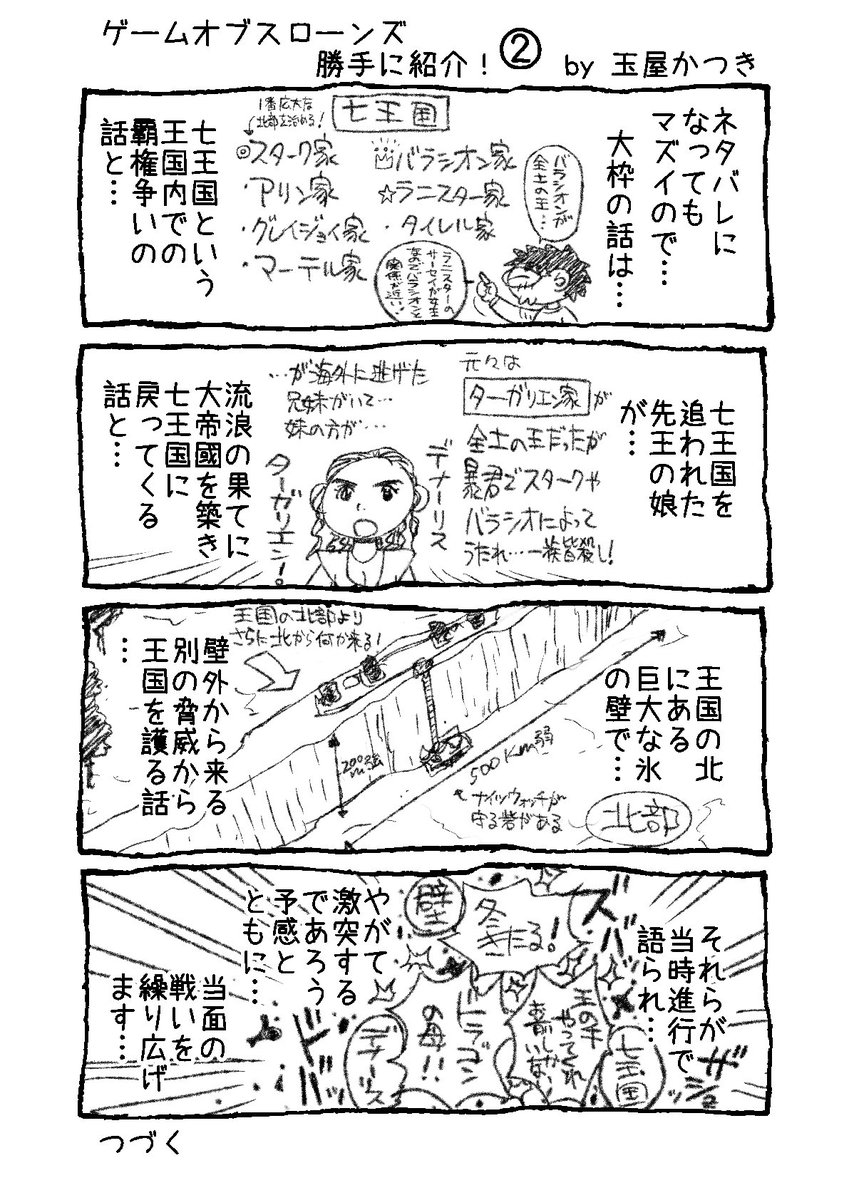 ゲームオブスローンズ
勝手に紹介！②
by 玉屋かつき
ネタバレに
なっても
マズイので…
大枠の話は…
バラシオンが
全土の王…
七王国
1番広大な
北部を治める！
◎スターク家
・アリン家
・グレイジョイ家
・マーテル家
バラシオン家
☆ラニスター家
・タイレル家
ラニスターの
サーセイが女王
なのでバラシオンと
関係が近い！
七王国という
王国内での
覇権争いの
話と…
七王国を
追われた
先王の娘
が…
元々は
ターガリエン家が
全土の王だったが
暴君でスタークや
バラシオによって
うたれ…一族皆殺し！
…が海外に逃げた
兄妹がいて…
妹の方が…
デナーリス
ターガリエン！。
流浪の果てに
大帝國を築き
七王国に
戻ってくる
話と…
王国の北
にある
巨大な氷
の壁で…
北部
王国の北部より
さらに北から何か来る！
200m強
500Km弱
ナイツウォッチが
守る砦がある
壁外から来る
別の脅威から
王国を護る話
…
それらが
当時進行で
語られ…
ズバ
冬
きたる！
壁
ザ
七王国
王の手
やってくれ
お前しかいない
ドラゴン
の母！！
デナーリス
ドバ
やがて
激突する
であろう
予感と
ともに…
当面の
戦いを
繰り広げ
ます…
つづく